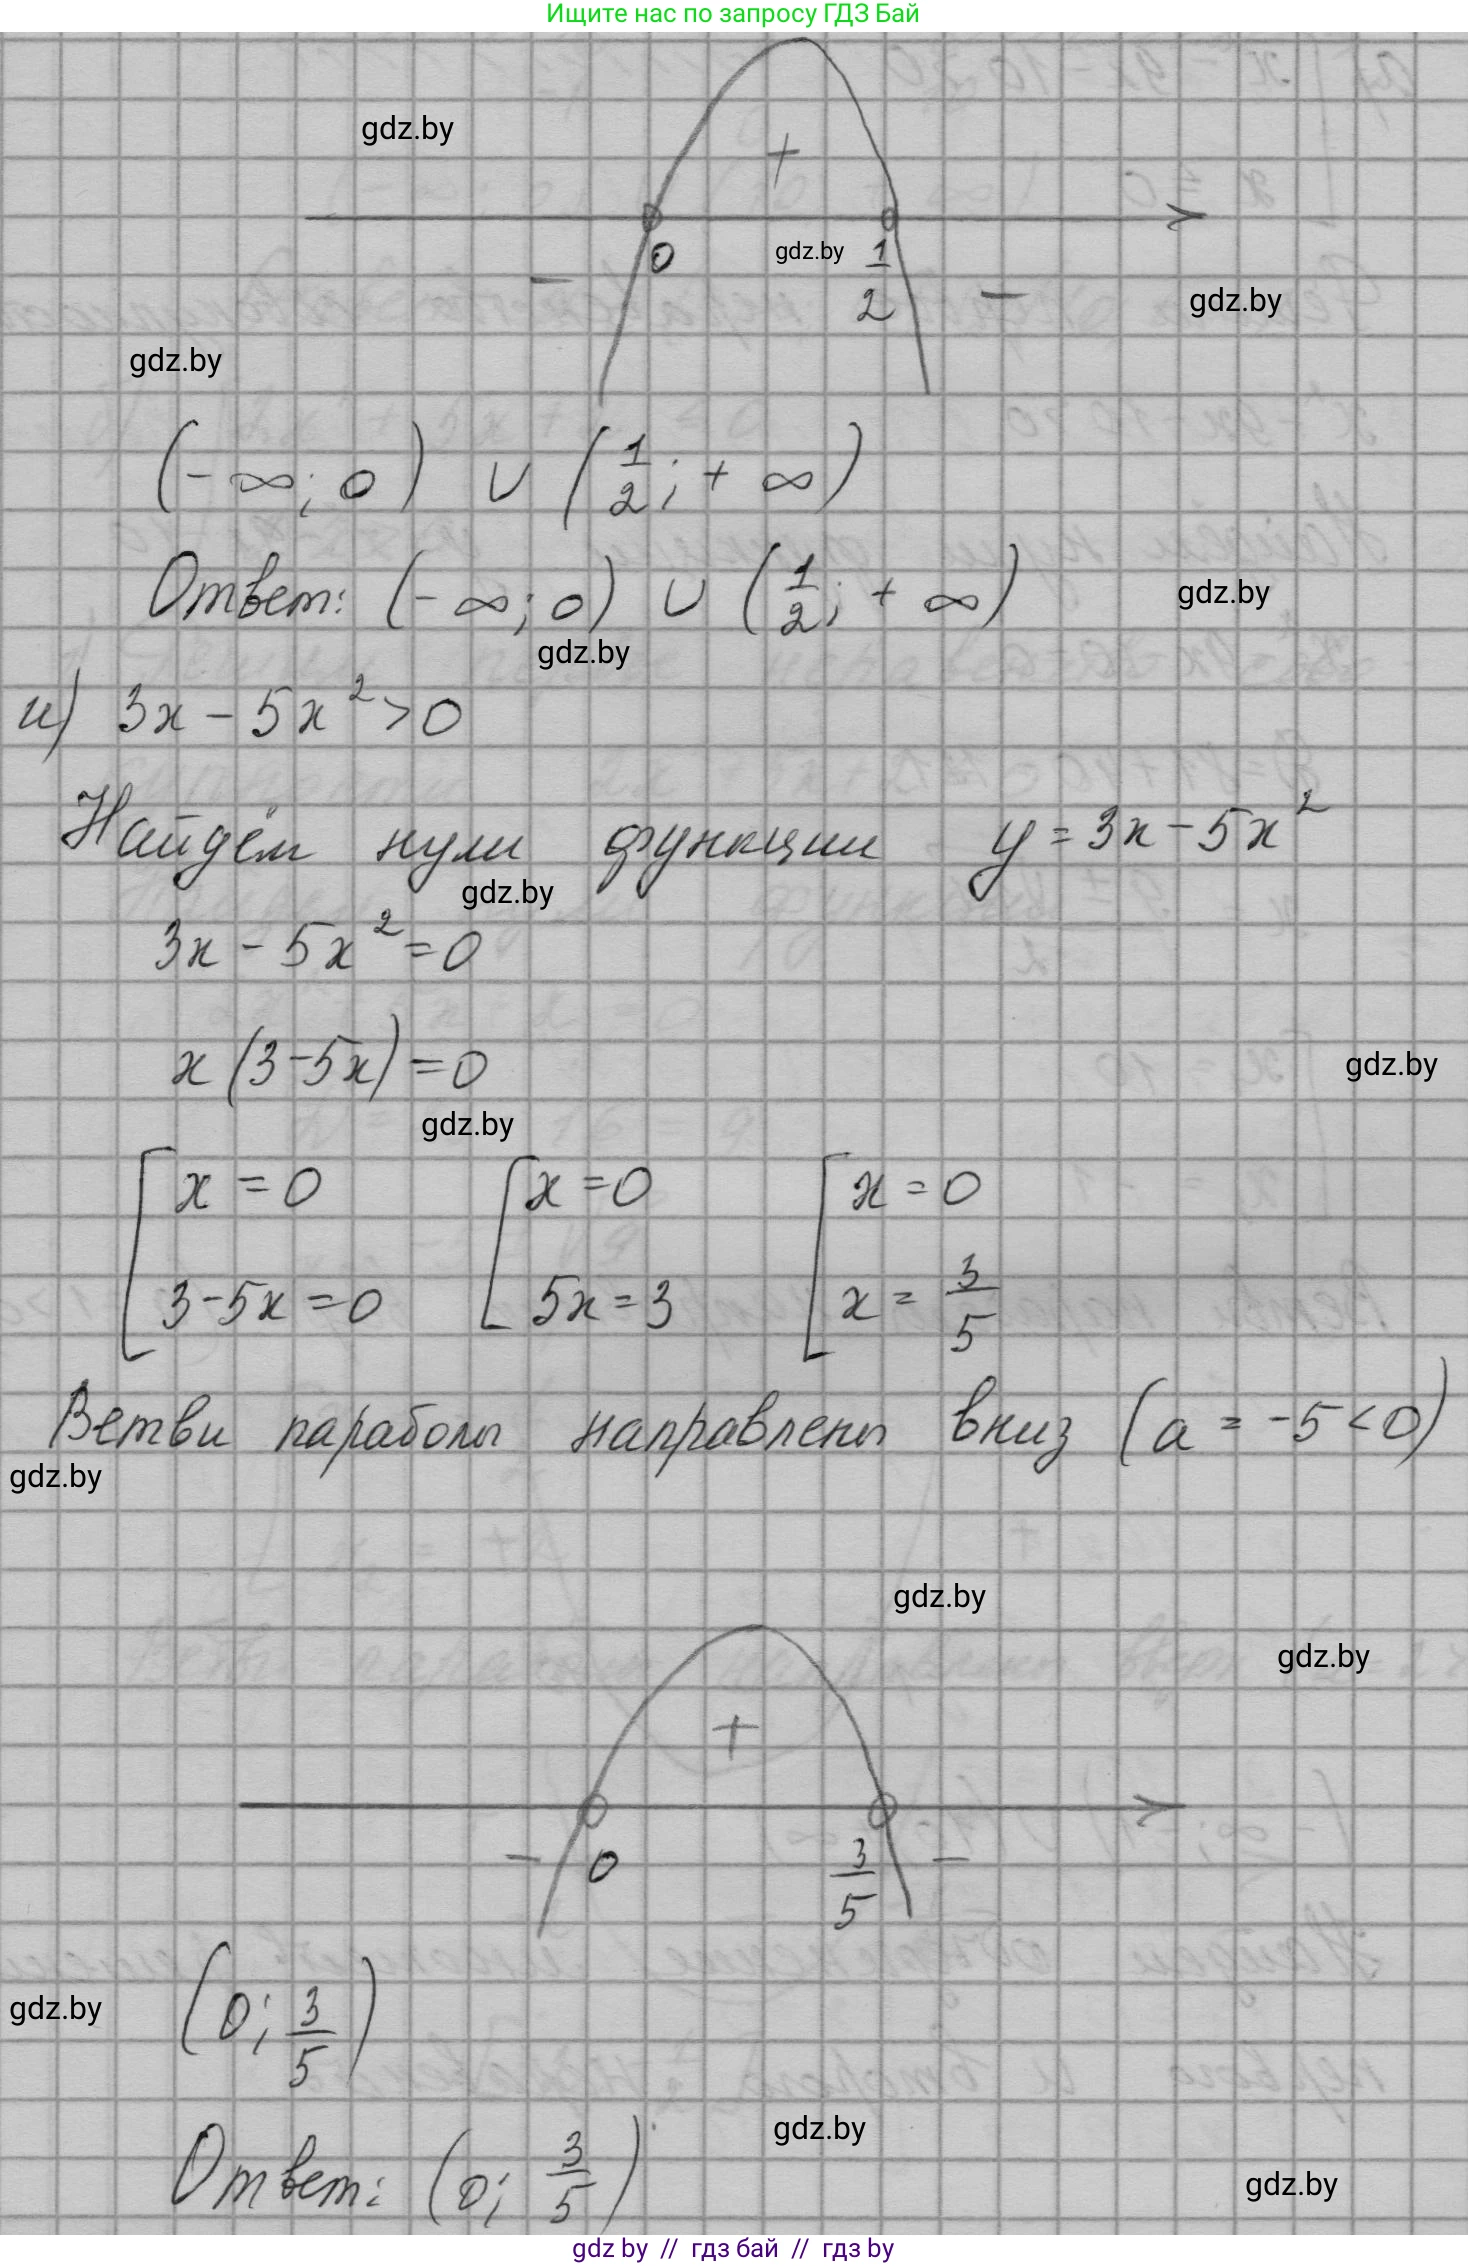 Ищите нас по запросу ГДЗ Бай
gdz.by
+
0
gdz.by
1/2
gdz.by
−
−
gdz.by
(-∞; 0) ∪ (1/2; +∞)
Ответ: (-∞; 0) ∪ (1/2; +∞)
gdz.by
gdz.by
и) 3x - 5x² > 0
Найдём нули функции y = 3x - 5x²
gdz.by
3x - 5x² = 0
x (3-5x) = 0
gdz.by
gdz.by
[ x = 0 [ x = 0 [ x = 0
3-5x = 0 5x = 3 x = 3/5
Ветви параболы направлены вниз (a = -5 < 0)
gdz.by
gdz.by
gdz.by
+
−
0
3/5
−
(0; 3/5)
gdz.by
gdz.by
Ответ: (0; 3/5)
gdz.by
gdz by // гдз бай // гдз by